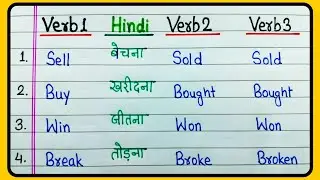 Verb1 Hindi Verb2 Verb3
1. Sell बेचना Sold Sold
2. Buy खरीदना Bought Bought
3. Win जीतना Won Won
4. Break तोड़ना Broke Broken